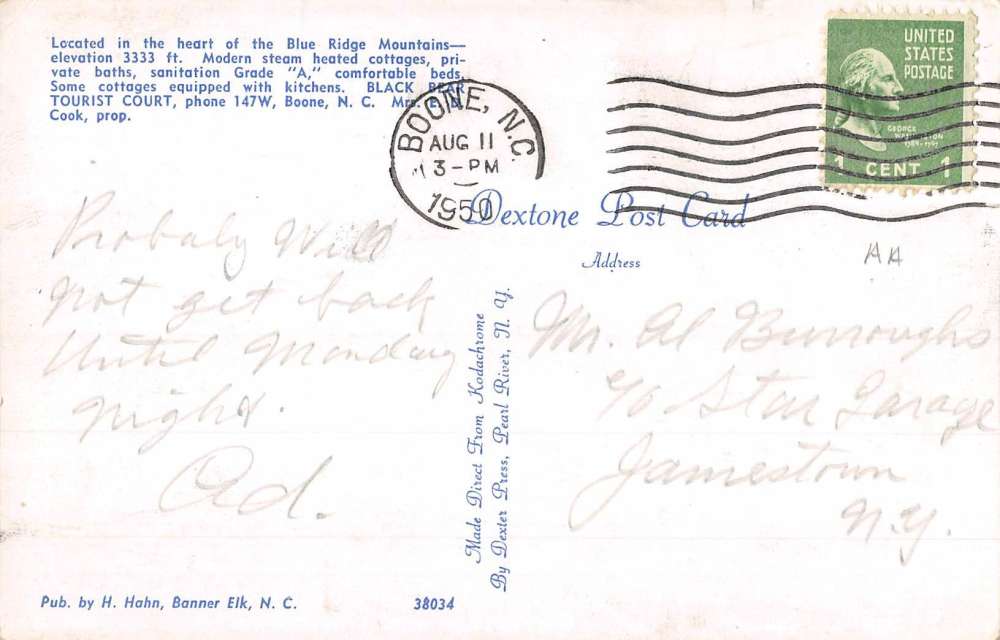 Located in the heart of the Blue Ridge Mountains—
elevation 3333 ft. Modern steam heated cottages, pri-
vate baths, sanitation Grade "A," comfortable beds.
Some cottages equipped with kitchens. BLACK BEAR
TOURIST COURT, phone 147W, Boone, N. C. Mrs.
Cook, prop.
BOONE, N.C.
AUG 11
3-PM
1950
UNITED
STATES
POSTAGE
GEORGE
WASHINGTON
1 CENT 1
Dextone Post Card
Address
AA
Probaly Will
not get back
Until Monday
night.
Ad.
Made Direct From Kodachrome
By Dexter Press, Pearl River, N. Y.
Mr. Al Burroughs
c/o Star Garage
Jamestown
N.Y.
Pub. by H. Hahn, Banner Elk, N. C.
38034